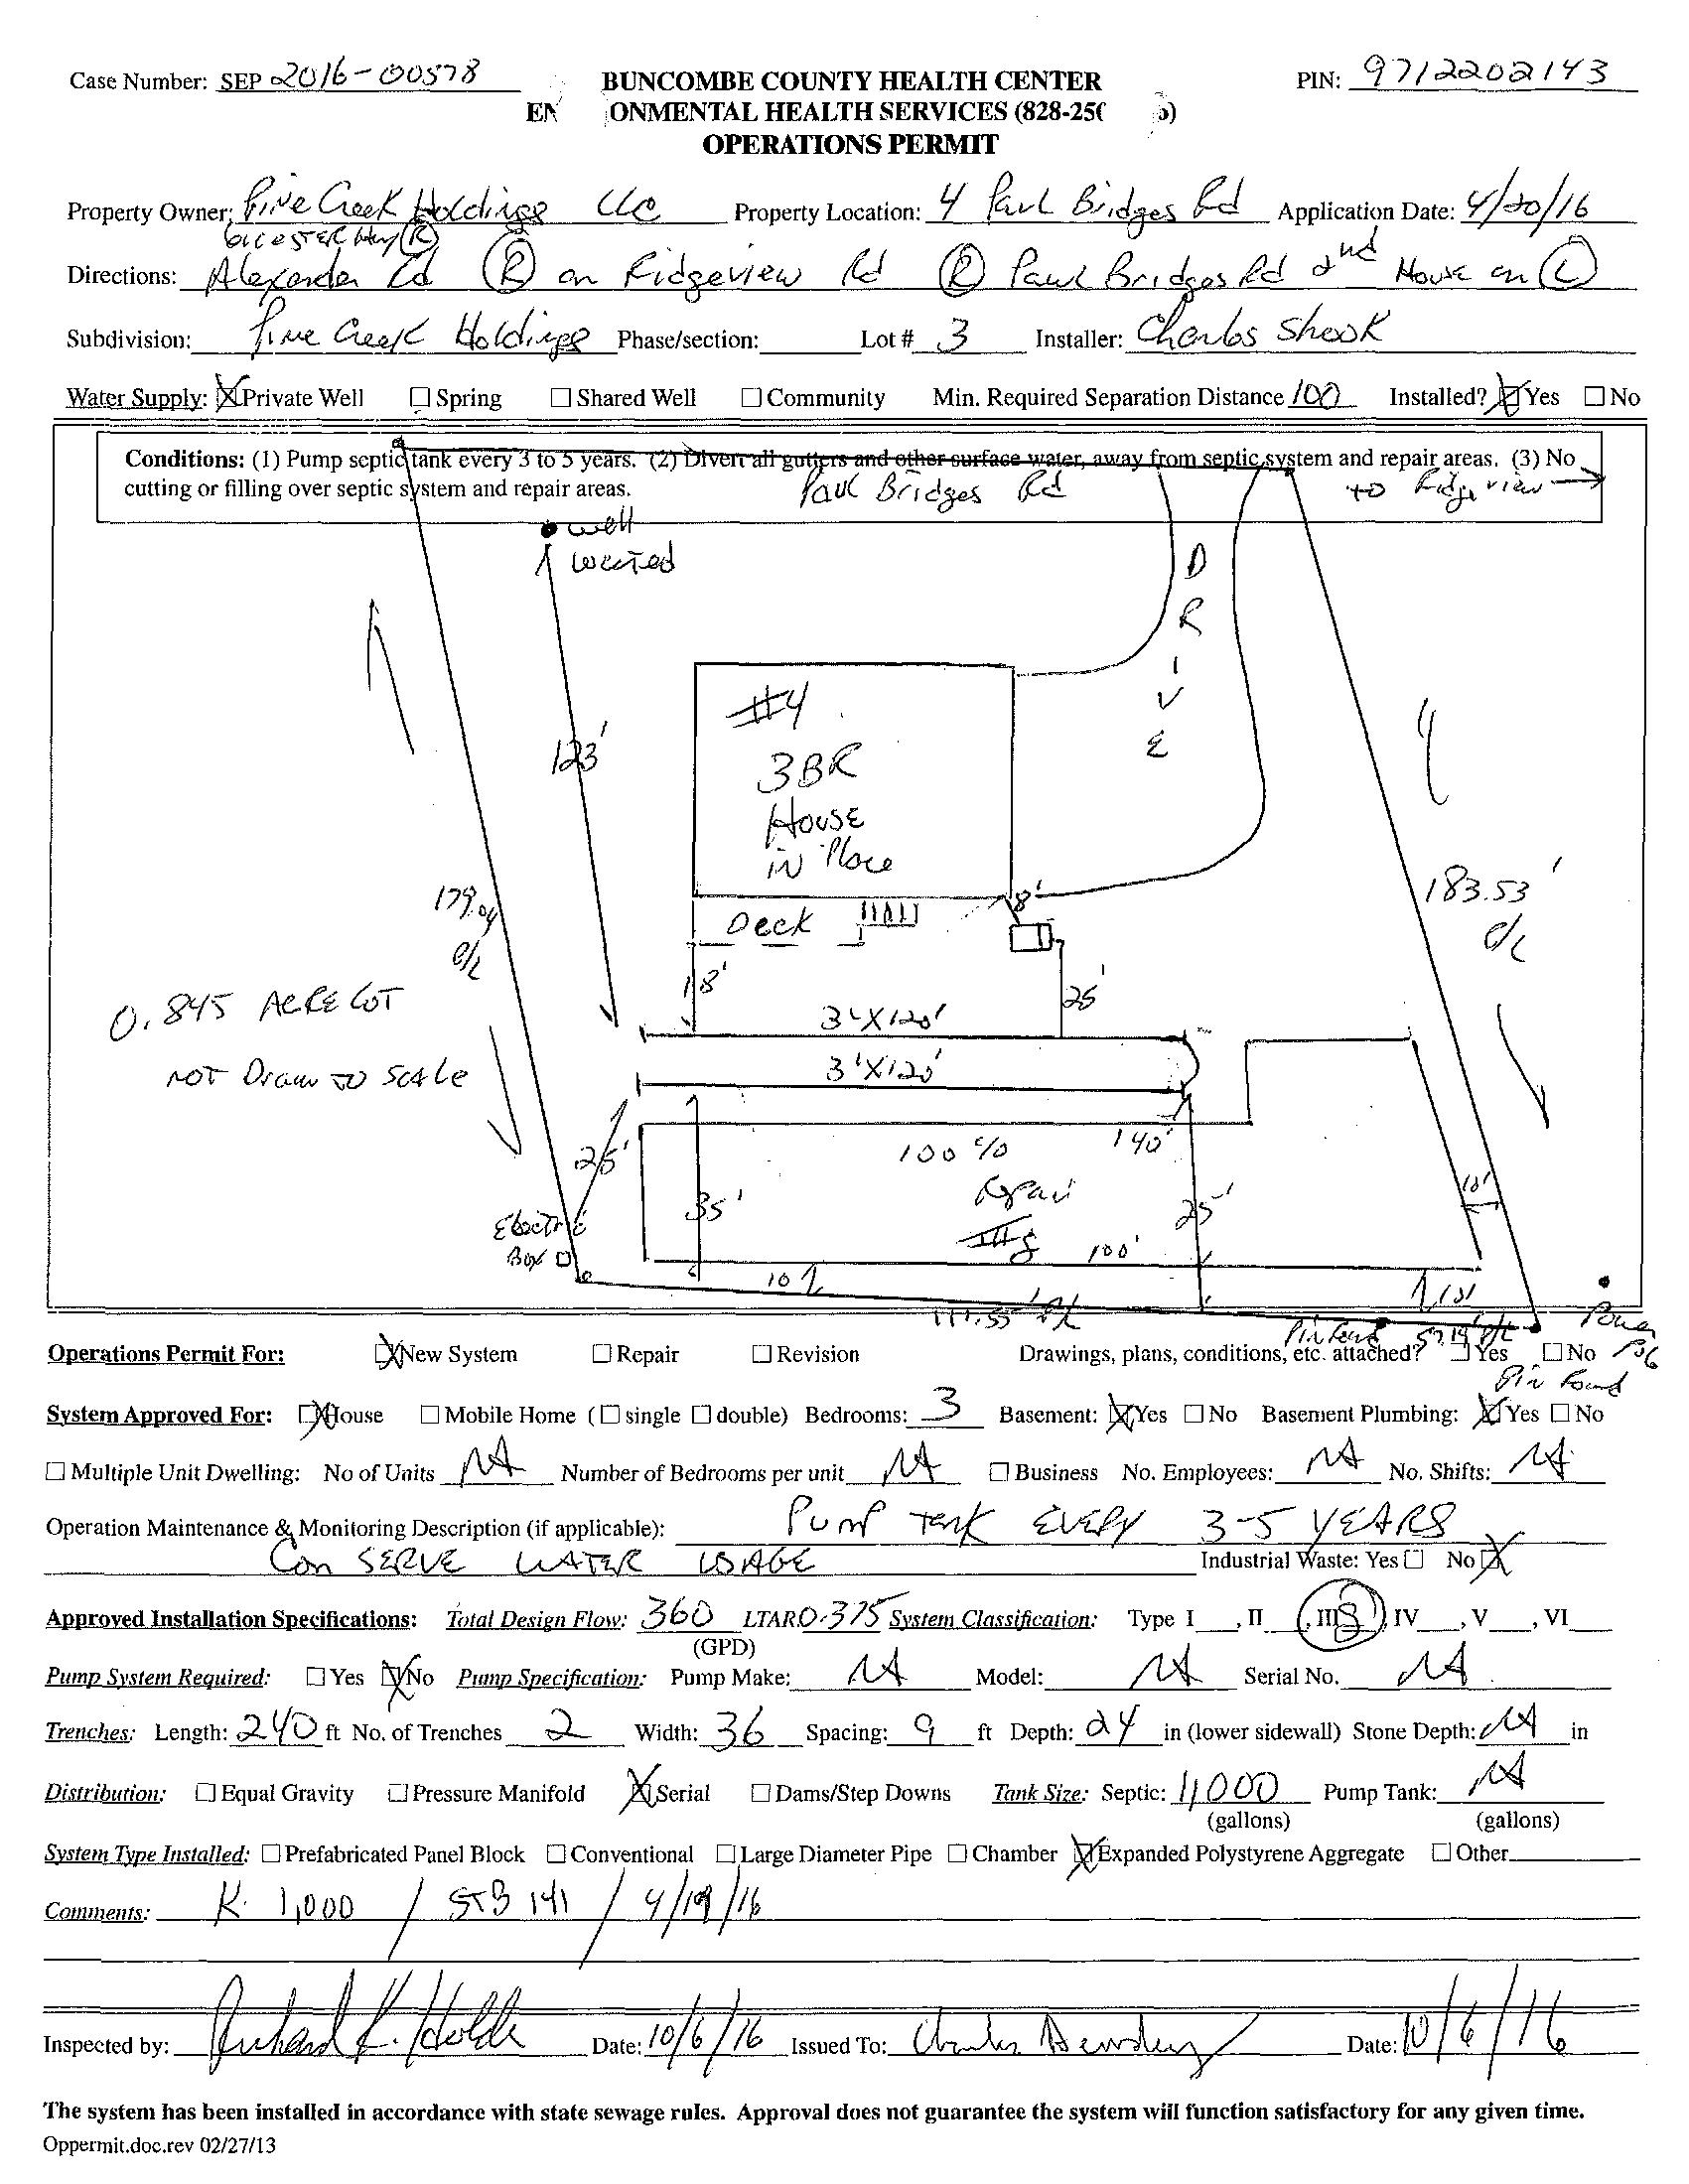 Case Number: SEP 2016-00578 BUNCOMBE COUNTY HEALTH CENTER PIN: 9712202143
ONMENTAL HEALTH SERVICES (828-25
OPERATIONS PERMIT
Property Owner: Pine Creek Holdings LLC Property Location: 4 Paul Bridges Rd Application Date: 4/20/16
Leicester Hwy (R)
Directions: Alexander Rd (R) on Ridgeview Rd (R) Paul Bridges Rd 2nd House on (L)
Subdivision: Pine Creek Holdings Phase/section: Lot # 3 Installer: Charles Shook
Water Supply: ☒Private Well ☐Spring ☐Shared Well ☐Community Min. Required Separation Distance 100 Installed? ☒Yes ☐No
Conditions: (1) Pump septic tank every 3 to 5 years. (2) Divert all gutters and other surface water, away from septic system and repair areas. (3) No
cutting or filling over septic system and repair areas. Paul Bridges Rd to Ridgeview
well
DRIVE
#4
123'
3BR
House
in Place
179.04 P/L
183.53' P/L
8'
Deck
18'
25'
0.845 ACRE LOT
3'X120'
NOT Draw TO Scale
3'X120'
25'
100% 140'
Repair
10'
35'
25'
Electric
Box
IIIg 100'
10'
10'
111.55' P/L
Pin Found
Power Pole
Operations Permit For: ☒New System ☐Repair ☐Revision Drawings, plans, conditions, etc. attached? ☐Yes ☐No
Pin Found
System Approved For: ☒House ☐Mobile Home (☐single ☐double) Bedrooms: 3 Basement: ☒Yes ☐No Basement Plumbing: ☒Yes ☐No
☐Multiple Unit Dwelling: No of Units NA Number of Bedrooms per unit NA ☐Business No. Employees: NA No. Shifts: NA
Operation Maintenance & Monitoring Description (if applicable): Pump Tank EVERY 3-5 YEARS
ConSERVE WATER USAGE Industrial Waste: Yes☐ No☒
Approved Installation Specifications: Total Design Flow: 360 LTAR 0.375 System Classification: Type I , II , IIIg , IV , V , VI
(GPD)
Pump System Required: ☐Yes ☒No Pump Specification: Pump Make: NA Model: NA Serial No. NA
Trenches: Length: 240 ft No. of Trenches 2 Width: 36 Spacing: 9 ft Depth: 24 in (lower sidewall) Stone Depth: NA in
Distribution: ☐Equal Gravity ☐Pressure Manifold ☒Serial ☐Dams/Step Downs Tank Size: Septic: 1,000 Pump Tank: NA
(gallons) (gallons)
System Type Installed: ☐Prefabricated Panel Block ☐Conventional ☐Large Diameter Pipe ☐Chamber ☒Expanded Polystyrene Aggregate ☐Other
Comments: K. 1,000 / STB 141 / 4/19/16
Inspected by: Date: 10/6/16 Issued To: Date: 10/6/16
The system has been installed in accordance with state sewage rules. Approval does not guarantee the system will function satisfactory for any given time.
Oppermit.doc.rev 02/27/13